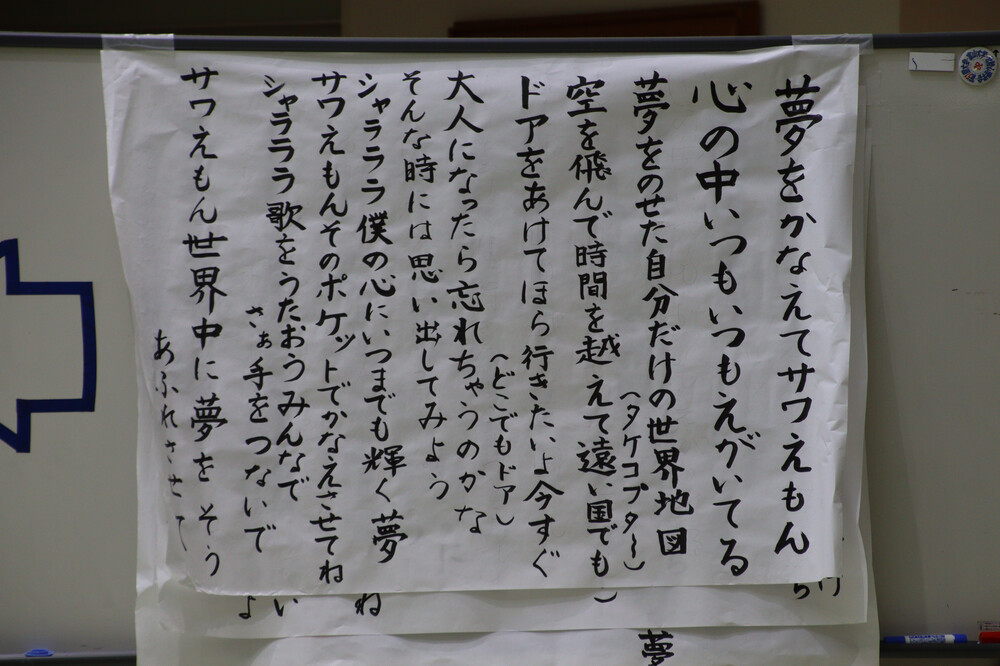 夢をかなえてサワえもん
心の中いつもいつもえがいてる
夢をのせた自分だけの世界地図
(タケコプター)
空を飛んで時間を越えて遠い国でも
ドアをあけてほら行きたいよ今すぐ
(どこでもドア)
大人になったら忘れちゃうのかな
そんな時には思い出してみよう
シャラララ僕の心にいつまでも輝く夢
サワえもんそのポケットでかなえさせてね
シャラララ歌をうたおうみんなで
さぁ手をつないで
サワえもん世界中に夢を そう
あふれさせて
夢